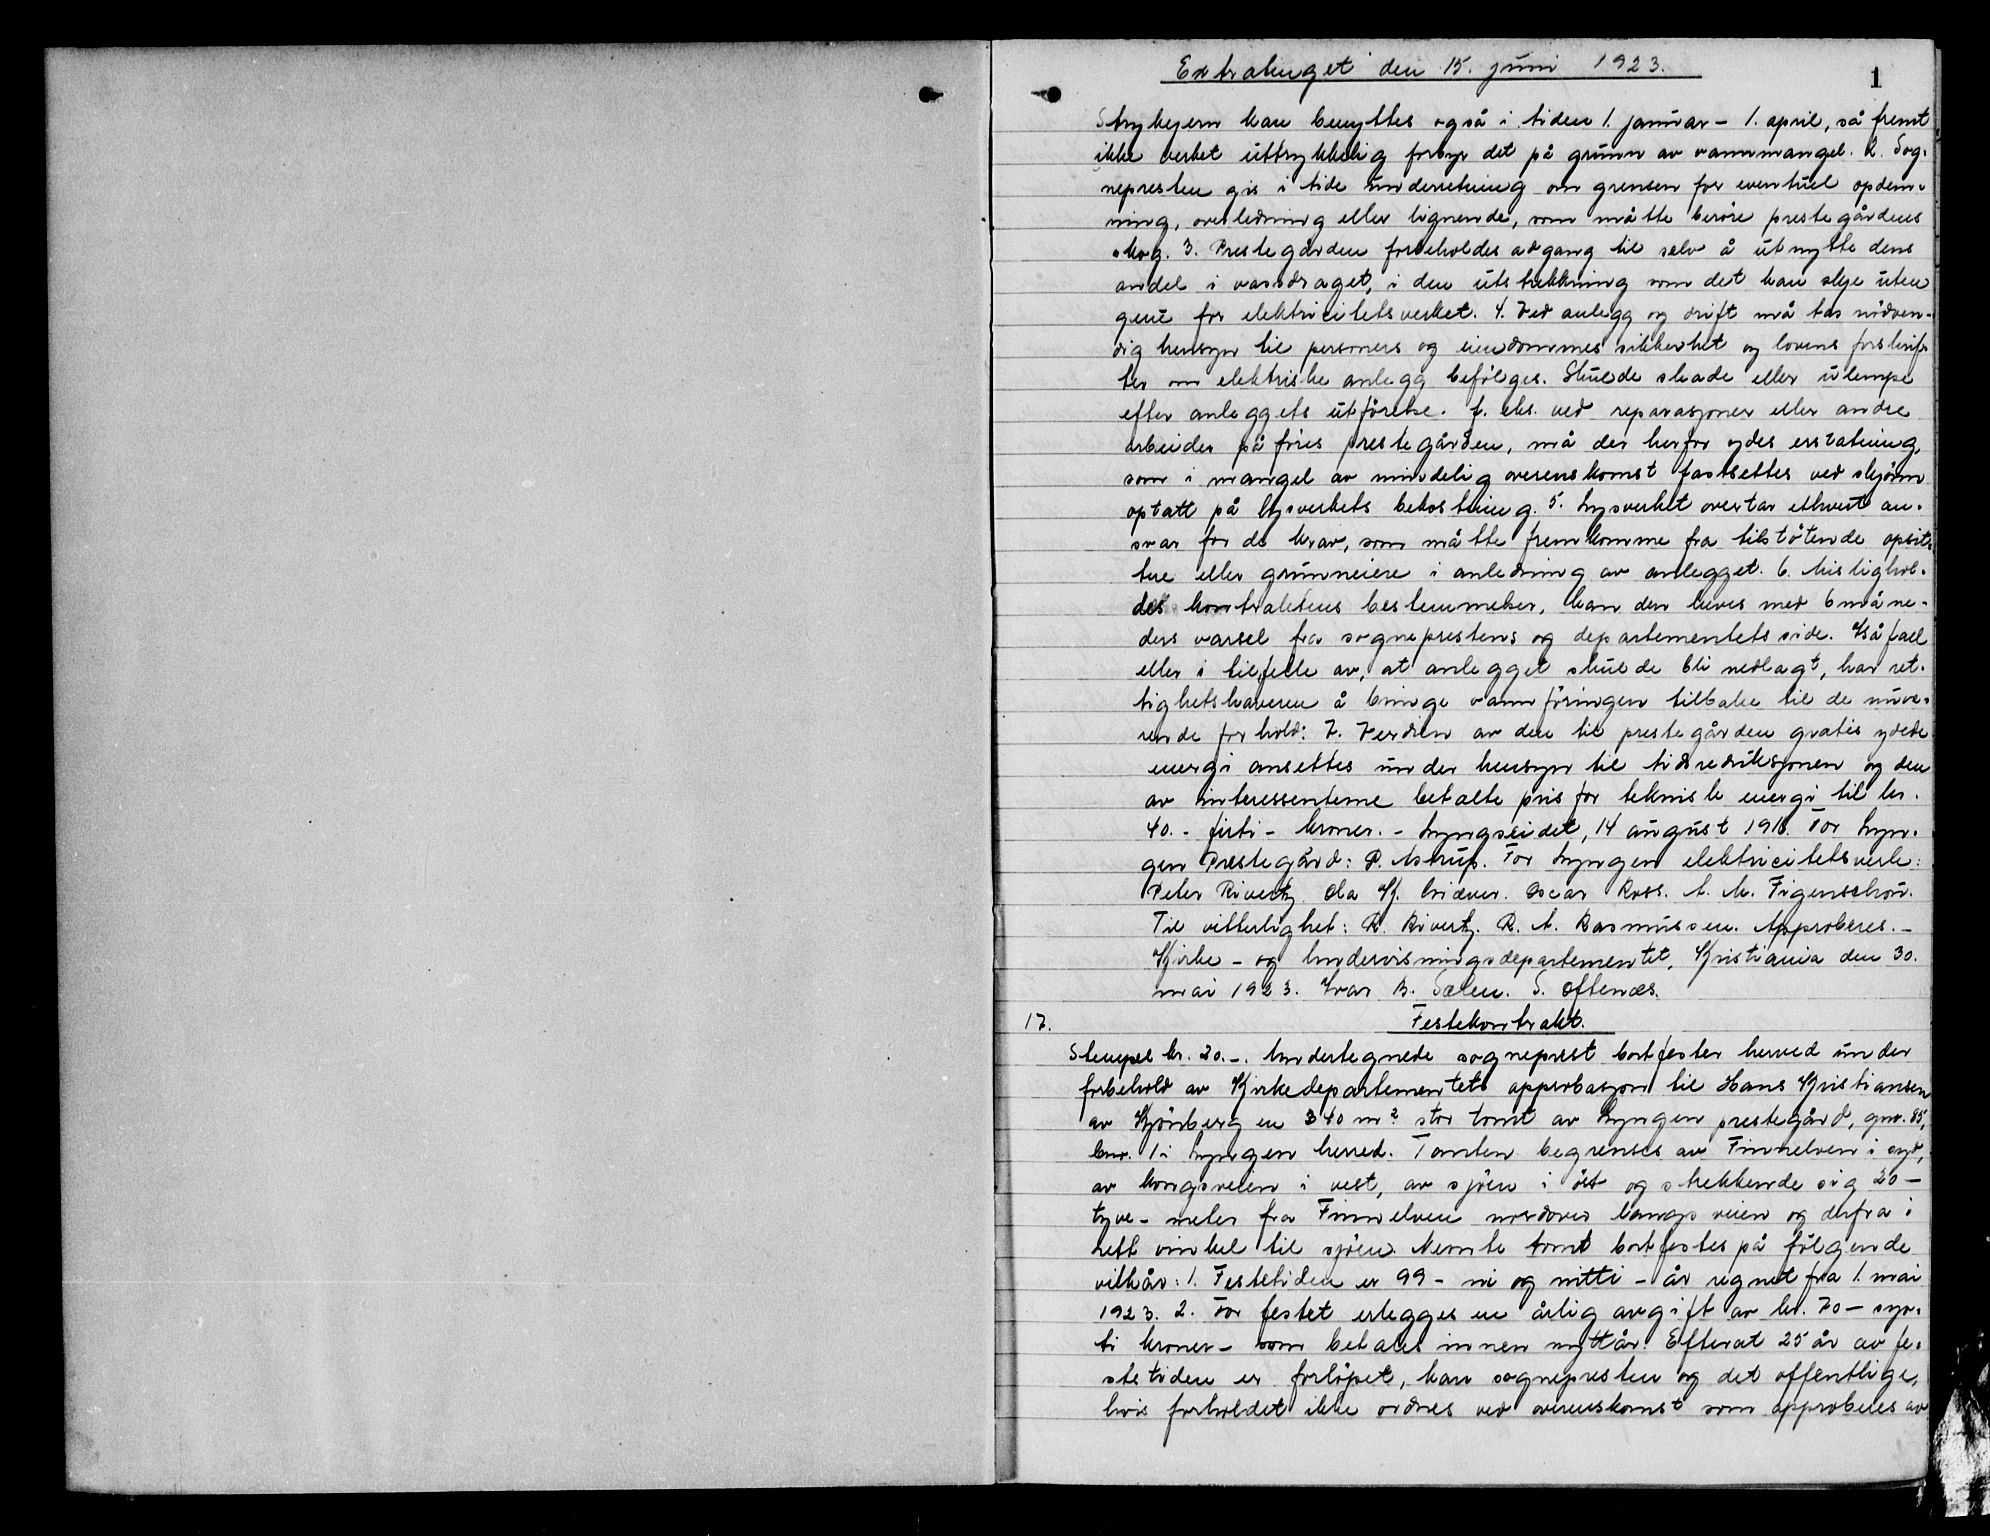 Extratinget den 15. juni 1923.
1
Strykejern kan benyttes også i tiden 1. januar – 1. april, så fremt
ikke verket uttrykkelig forbyr det på grunn av vannmangel. 2. Sog-
nepresten gis i tide underretning om grensen for eventuel opdem-
ning, overledning eller lignende, som måtte berøre prestegårdens
skog. 3. Prestegården forbeholdes adgang til selv å utnytte dens
andel i vassdraget, i den utstrekkning som det kan skje uten
gene for elektricitetsverket. 4. Ved anlegg og drift må tas nødven-
dig hensyn til personers og eiendommes sikkerhet og lovens forskrif-
ter om elektriske anlegg befølges. Skulde skade eller ulempe
efter anleggets utførelse f. eks. ved reparasjoner eller andre
arbeider påføres prestegården, må der herfor ydes erstatning,
som i mangel av mindelig overenskomst fastsettes ved skjønn
optatt på lysverkets bekostning. 5. Lysverket overtar ethvert an-
svar for de krav, som måtte fremkomme fra tilstøtende opsit-
tere eller grunneiere i anledning av anlegget. 6. Mislighol-
des kontraktens bestemmelser, kan den heves med 6 måne-
ders varsel fra sogneprestens og departementets side. I så fall
eller i tilfelle av, at anlegget skulde bli nedlagt, har ret-
tighetshaveren å bringe vannføringen tilbake til de nuve-
rende forhold. 7. Verdien av den til prestegården gratis ydede
energi ansettes under hensyn til tidsreduksjonen og den
av interessentene betalte pris for teknisk energi til kr.
40.- firti - kroner. - Lyngseidet, 14 august 1918. For Lyn-
gen Prestegård: P. Astrup. For Lyngen elektricitetsverk:
Peter Rivertz. Ola Kj. Giæver. Oscar Ross. A. M. Figenschou.
Til vitterlighet: R. Rivertz. R. A. Rasmussen. Approberes. -
Kirke- og Undervisningsdepartementet, Kristiania den 30.
mai 1923. Ivar B. Sælen. S. Oftenæs.
17. Festekontrakt.
Stempel kr. 20.-. Undertegnede sogneprest bortfester herved under
forbehold av Kirkedepartementets approbasjon til Hans Kristiansen
av Kjönberg en 340 m² stor tomt av Lyngen prestegård, gnr. 85,
bnr. 1 i Lyngen herred. Tomten begrenses av Finnelven i syd,
av kongsveien i vest, av sjøen i øst og strekkende sig 20 -
tyve - meter fra Finnelven nordover langs veien og derfra i
rett vinkel til sjøen. Nevnte tomt bortfestes på følgende
vilkår: 1. Festetiden er 99 - ni og nitti - år regnet fra 1. mai
1923. 2. For festet erlegges en årlig avgift av kr. 70 - syv-
ti kroner - som betales innen nyttår. Efterat 25 år av fe-
stetiden er forløpet, kan sognepresten og det offentlige,
hvis forholdet ikke ordnes ved overenskomst som approberes av